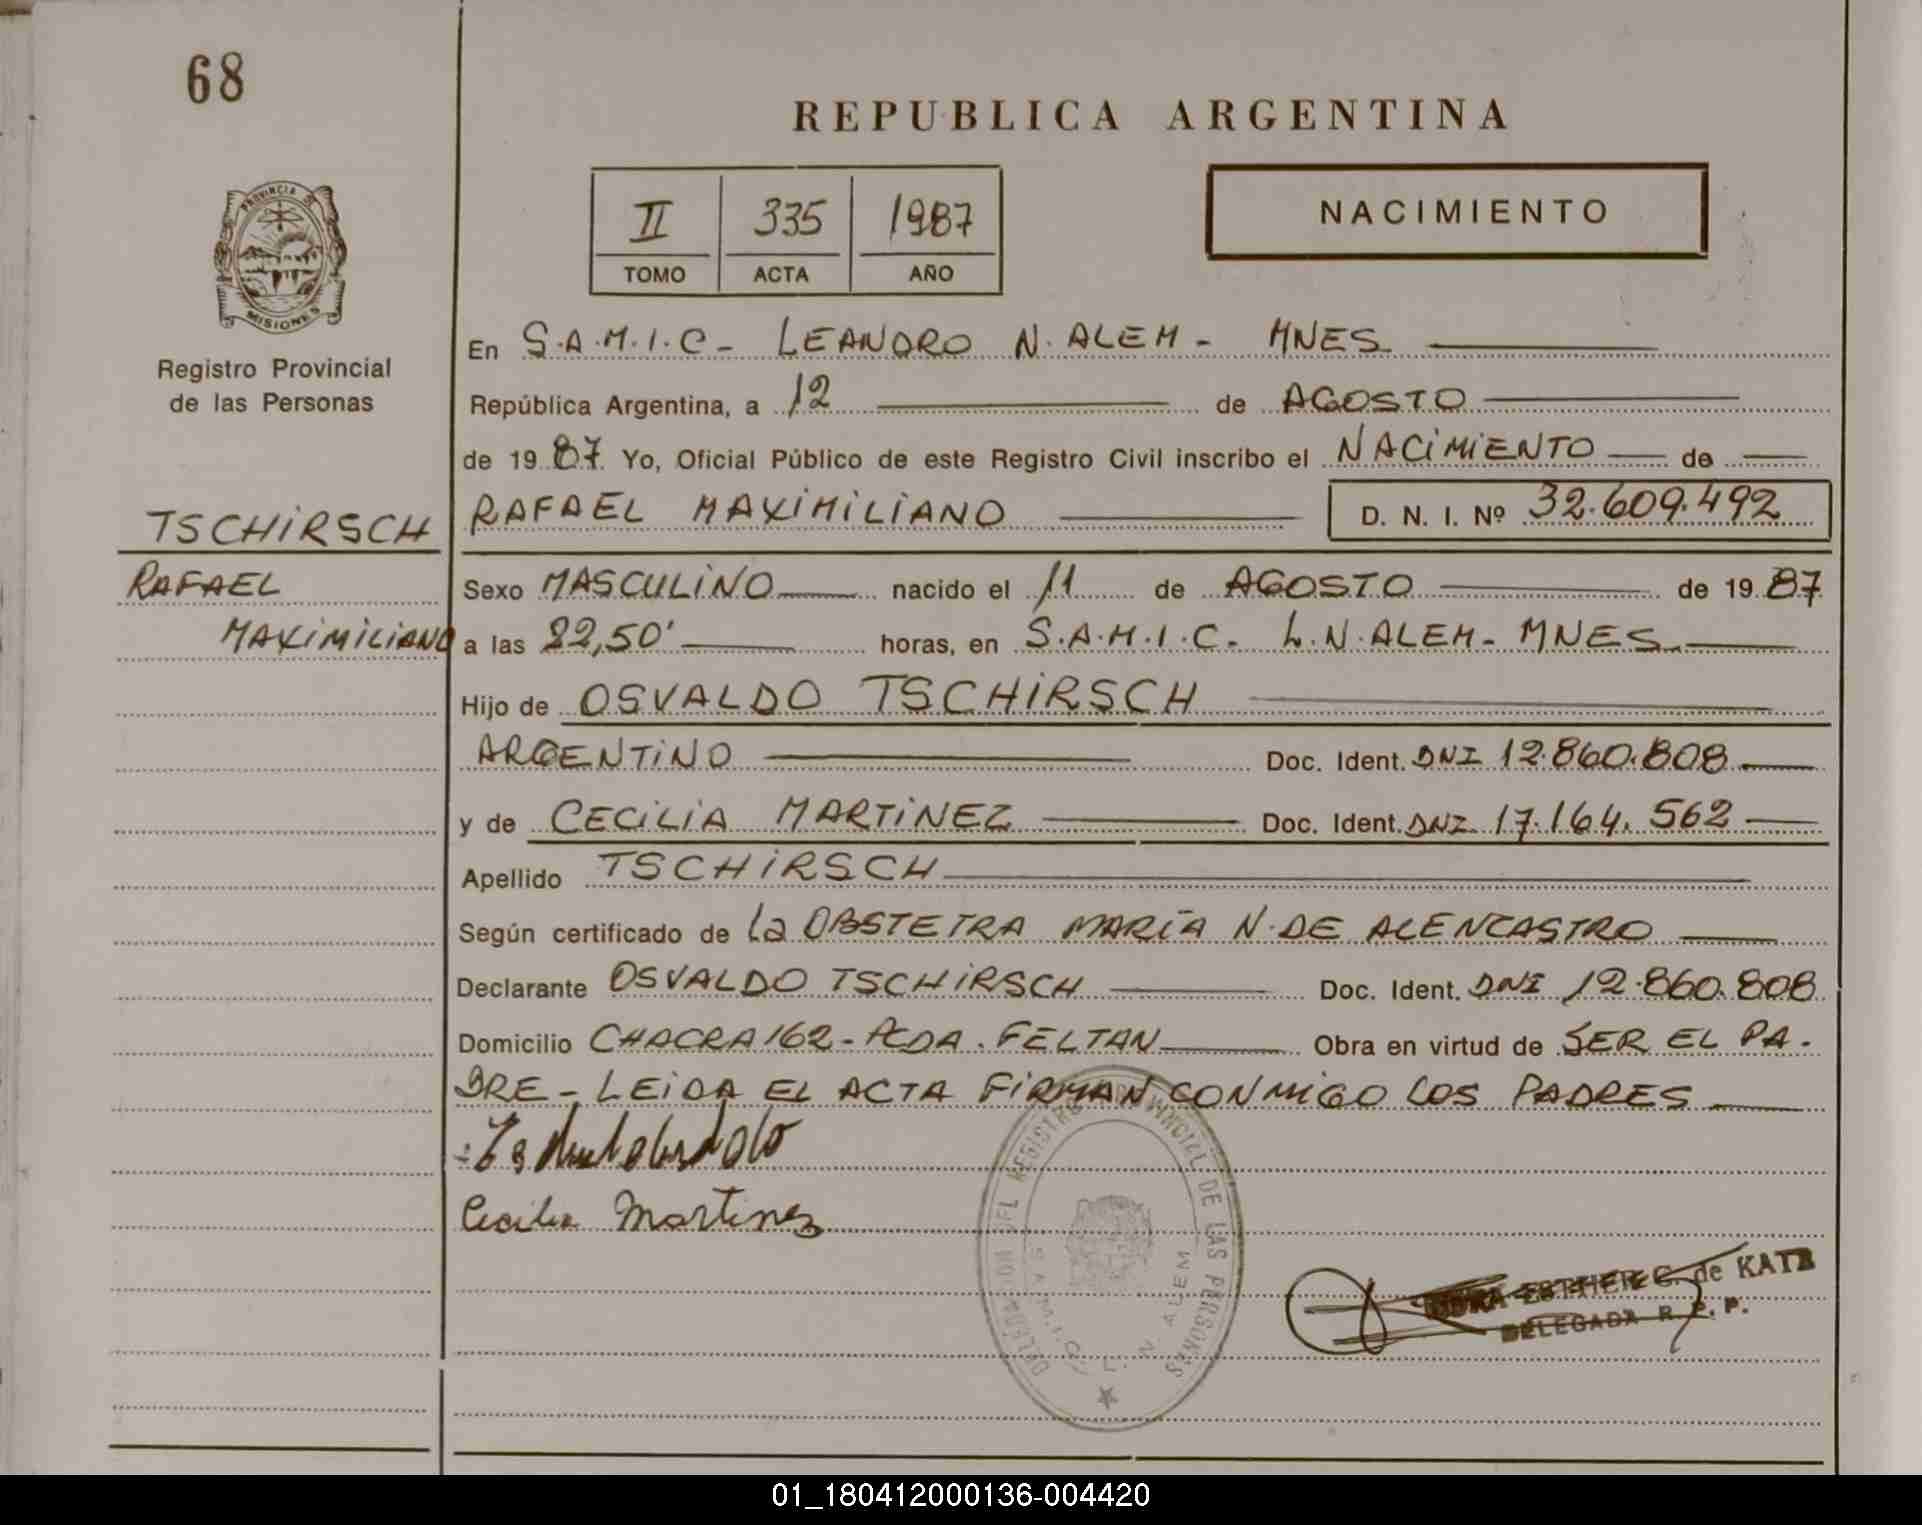 68
REPUBLICA ARGENTINA
II 335 1987
TOMO ACTA AÑO
NACIMIENTO
PROVINCIA DE
MISIONES
Registro Provincial
de las Personas
TSCHIRSCH
RAFAEL
MAXIMILIANO
En S.A.M.I.C- LEANDRO N. ALEM - MNES
República Argentina, a 12 de AGOSTO
de 1987. Yo, Oficial Público de este Registro Civil inscribo el NACIMIENTO de
RAFAEL MAXIMILIANO D. N. I. Nº 32.609.492
Sexo MASCULINO nacido el 11 de AGOSTO de 1987
a las 22,50' horas, en S.A.M.I.C. L.N.ALEM- MNES
Hijo de OSVALDO TSCHIRSCH
ARGENTINO Doc. Ident. DNI 12.860.808
y de CECILIA MARTINEZ Doc. Ident. DNI 17.164.562
Apellido TSCHIRSCH
Según certificado de la OBSTETRA MARÍA N. DE ALENCASTRO
Declarante OSVALDO TSCHIRSCH Doc. Ident. DNI 12.860.808
Domicilio CHACRA 162- PCDA. FELTAN Obra en virtud de SER EL PA-
DRE - LEIDA EL ACTA FIRMAN CONMIGO LOS PADRES
Cecilia Martinez
DELEGACION DEL REGISTRO PROVINCIAL DE LAS PERSONAS
S.A.M.I.C. L. N. ALEM
ESTHER G. de KATZ
DELEGADA R. P. P.
01_180412000136-004420